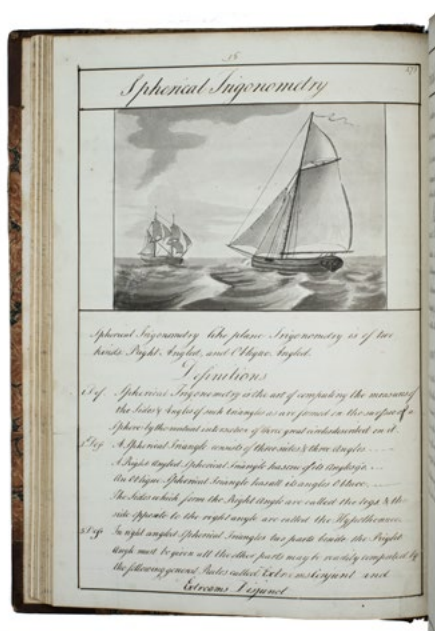 Spherical Trigonometry
Spherical Trigonometry like plane Trigonometry is of two
kinds Right Angled, and Oblique Angled.
Definitions
1 Def. Spherical Trigonometry is the art of computing the measures of
the Sides & Angles of such triangles as are formed on the surface of a
Sphere by the mutual intersection of three great circles described on it.
2 Def. A Spherical Triangle consists of three sides & three Angles
A Right Angled Spherical Triangle has one of its Angles
An Oblique Spherical Triangle has all its angles
The Sides which form the Right Angle are called the legs & the
side opposite to the right angle are called the Hypothenuse
3 Def. In right angled Spherical Triangles two parts beside the Right
Angle must be given all the other parts may be readily computed by
the following general Rules called Extreams Conjunct and
Extreams Disjunct